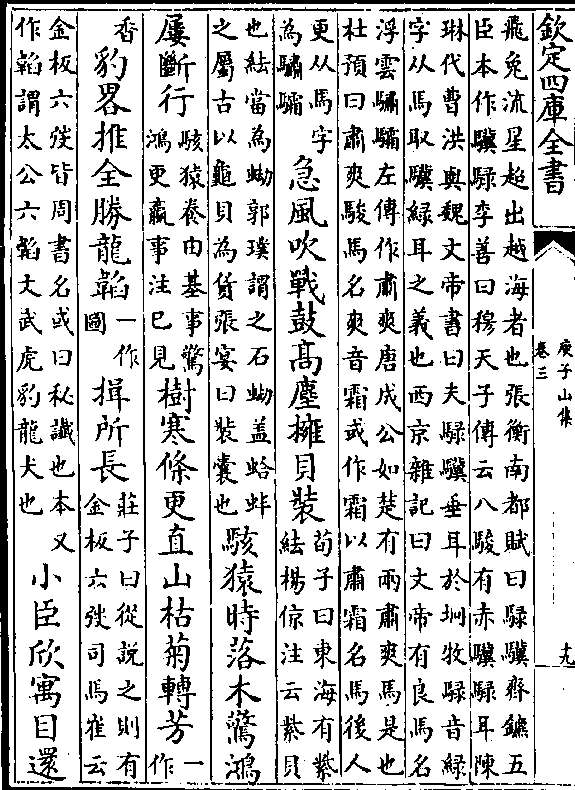 欽定四庫全書
庾子山集
卷三
十九
飛兔流星超出越海者也張衡南都賦曰騄驥齊鑣五
臣本作驥騄李善曰穆天子傳云八駿有赤驥騄耳陳
琳代曹洪與魏文帝書曰夫騄驥垂耳於坰牧騄音緑
字从馬取驥緑耳之義也西京雜記曰文帝有良馬名
浮雲驌驦左傳作肅爽唐成公如楚有兩肅爽馬是也
杜預曰肅爽駿馬名爽音霜或作霜以肅霜名馬後人
更从馬字
為驌驦
急風吹戰鼓高塵擁貝裝
荀子曰東海有紫
紶楊倞注云紫貝
也紶當為蚴郭璞謂之石蚴盖蛤蚌
之屬古以龜貝為貨張宴曰裝囊也
駭猿時落木驚鴻
屢斷行
駭猿養由基事驚
鴻更羸事注已見
樹寒條更直山枯菊轉芳
一
作
香
豹畧推全勝龍韜
一作
圖
揖所長
莊子曰從說之則有
金板六弢司馬崔云
金板六弢皆周書名或曰秘讖也本又
作韜謂太公六韜文武虎豹龍犬也
小臣欣寓目還